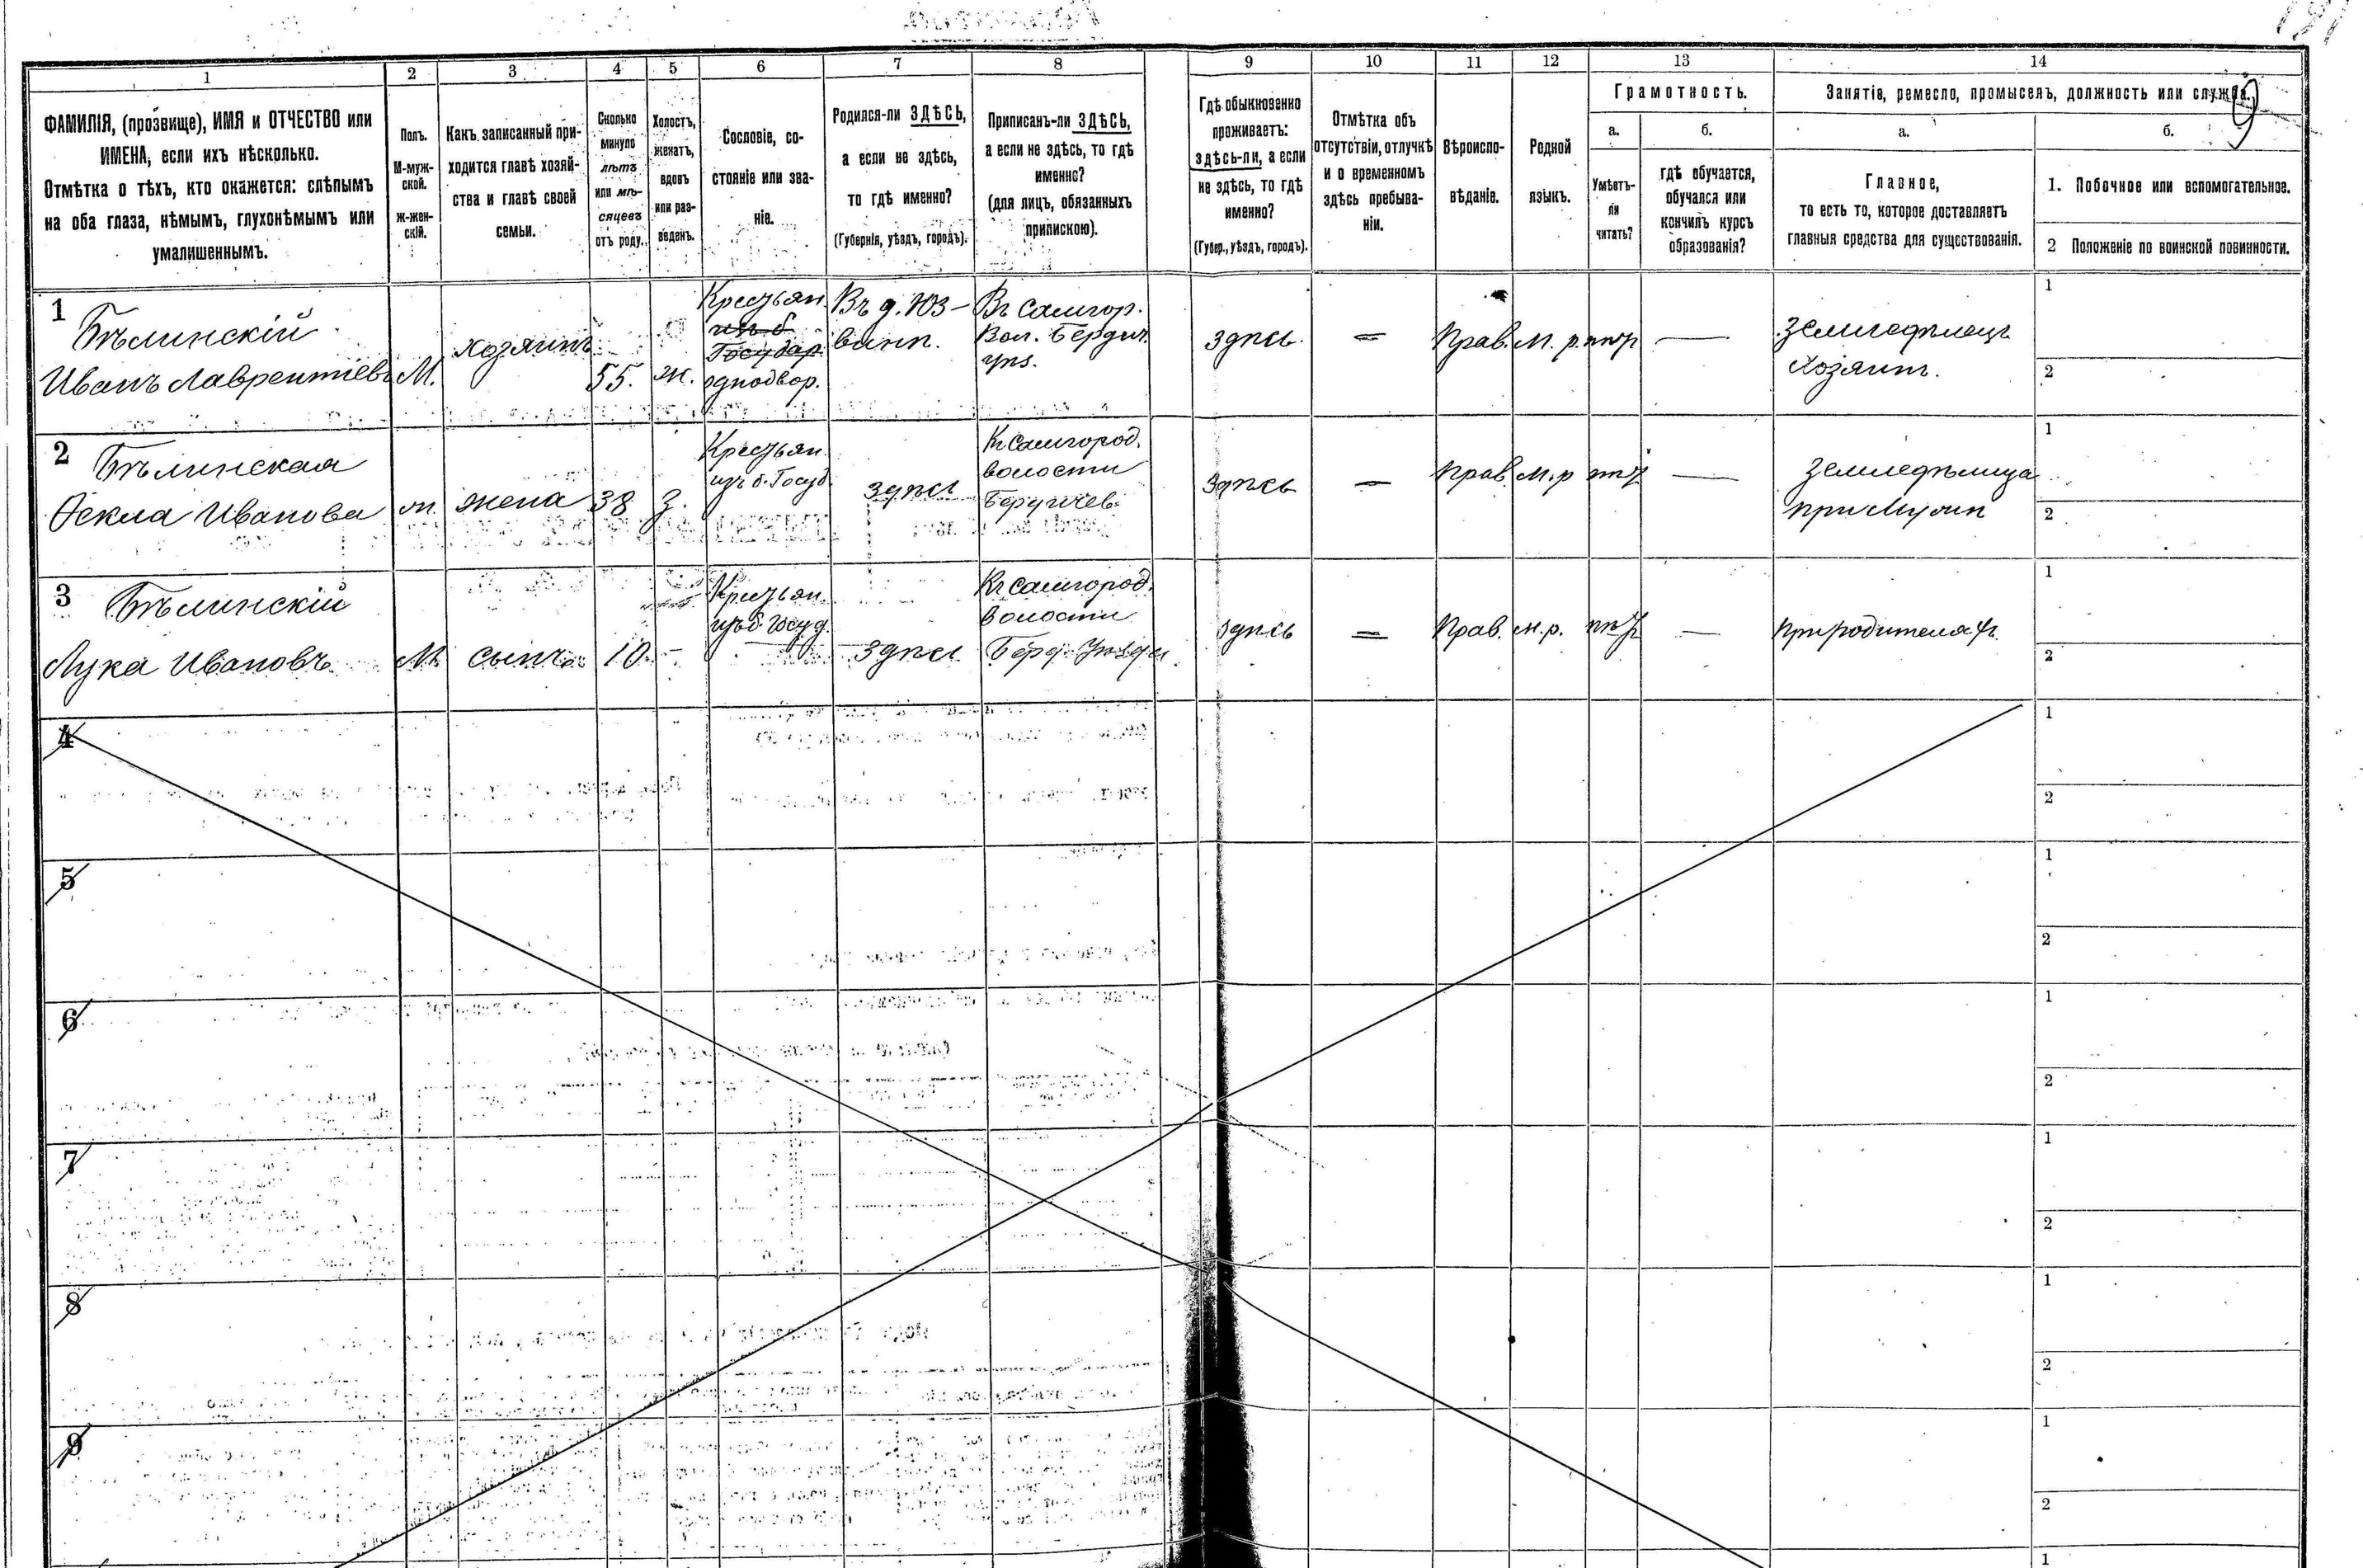 1 2 3 4 5 6 7 8 9 10 11 12 13 14
ФАМИЛІЯ, (прозвище), ИМЯ и ОТЧЕСТВО или
ИМЕНА, если ихъ нѣсколько.
Отмѣтка о тѣхъ, кто окажется: слѣпымъ
на оба глаза, нѣмымъ, глухонѣмымъ или
умалишеннымъ.
Полъ.
М-муж-
ской.
ж-жен-
скій.
Какъ записанный при-
ходится главѣ хозяй-
ства и главѣ своей
семьи.
Сколько
минуло
лѣтъ
или мѣ-
сяцевъ
отъ роду.
Холостъ,
женатъ,
вдовъ
или раз-
веденъ.
Сословіе, со-
стояніе или зва-
ніе.
Родился-ли ЗДѢСЬ,
а если не здѣсь,
то гдѣ именно?
(Губернія, уѣздъ, городъ).
Приписанъ-ли ЗДѢСЬ,
а если не здѣсь, то гдѣ
именно?
(для лицъ, обязанныхъ
припискою).
Гдѣ обыкновенно
проживаетъ:
здѣсь-ли, а если
не здѣсь, то гдѣ
именно?
(Губер., уѣздъ, городъ).
Отмѣтка объ
отсутствіи, отлучкѣ
и о временномъ
здѣсь пребыва-
ніи.
Вѣроиспо-
вѣданіе.
Родной
языкъ.
Грамотность.
а.
Умѣетъ-
ли
читать?
б.
гдѣ обучается,
обучался или
кончилъ курсъ
образованія?
Занятіе, ремесло, промыселъ, должность или служба.
9
а.
Главное,
то есть то, которое доставляетъ
главныя средства для существованія.
б.
1. Побочное или вспомогательное.
2 Положеніе по воинской повинности.
1
Бѣлинскій
Иванъ Лаврентіевъ
М.
хозяинъ
55.
ж.
Крестьян.
изъ б.
Государ.
однодвор.
Въ д. Юз-
винѣ.
Въ Самгор.
Вол. Бердич.
уѣз.
здѣсь.
—
Прав.
М. р.
нѣтъ
—
земледѣлецъ
хозяинъ.
1
2
2
Бѣлинская
Ѳекла Иванова
ж.
жена
38
з.
Крестьян.
изъ б. Госуд.
здѣсь
Къ Самгород.
волости
Бердичев.
здѣсь
—
Прав.
м. р
нѣтъ
—
земледѣлица
при мужѣ
1
2
3
Бѣлинскій
Лука Ивановъ
М.
сынъ
10.
-
Крестьян.
изъ б. госуд.
здѣсь
Къ Самгород.
волости
Берд. Уѣзда
здѣсь
—
Прав.
м. р.
нѣтъ
—
При родителяхъ.
1
2
4
1
2
5
1
2
6
1
2
7
1
2
8
1
2
9
1
2
1